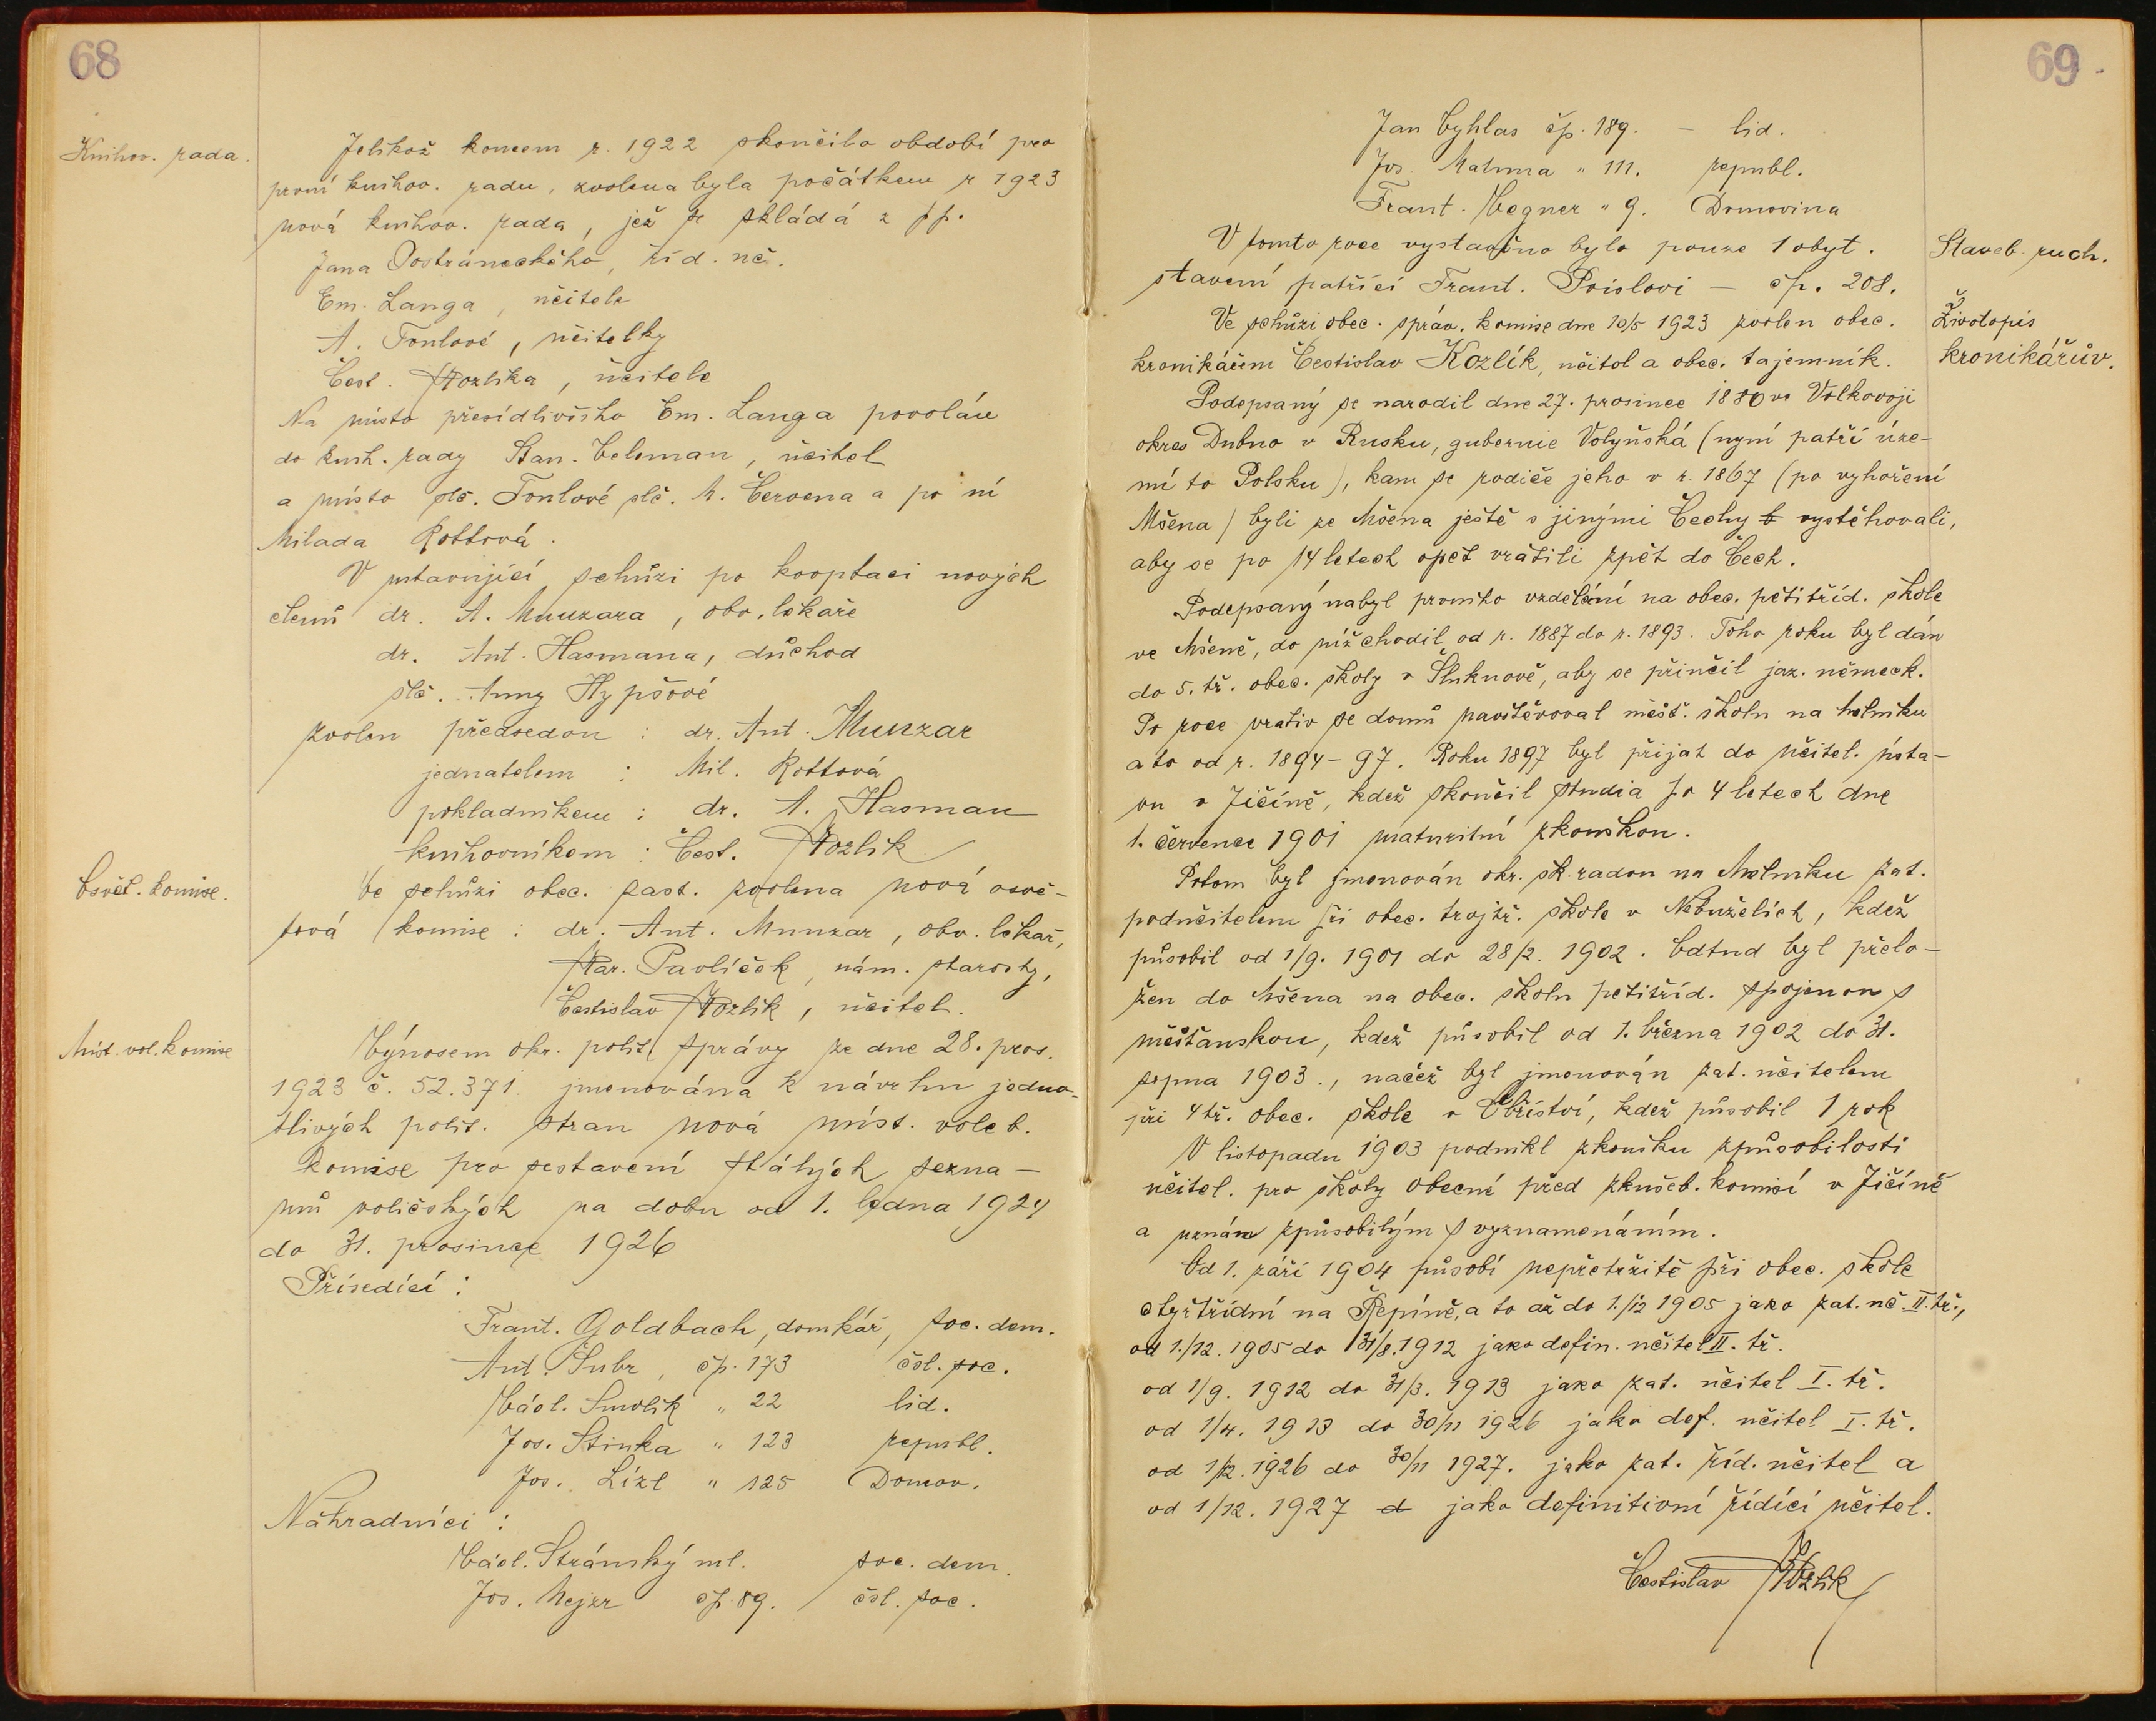 68
Knihov. rada.
Jelikož koncem r. 1922 skončilo období pro
první knihov. radu, zvolena byla počátkem r 1923
nová knihov. rada, jež se skládá z pp.
Jana Postráneckého, říd. uč.
Em. Langa, učitele
A. Tonlové, učitelky
Čest. Kozlíka, učitele
Na místo přesídlivšího Em. Langa povolán
do knih. rady Stan. Celeman, učitel
a místo slč. Tonlové slč. M. Červena a po ní
Milada Rottová.
V ustavující schůzi po kooptaci nových
členů dr. A. Munzara, obv. lékaře
dr. Ant. Hasmana, důchod
slč. Anny Hypšové
zvolen předsedou : dr. Ant. Munzar
jednatelem : Mil. Rottová
pokladníkem : dr. A. Hasman
knihovníkem : Čest. Kozlík
Osvět. komise.
Ve schůzi obec. zast. zvolena nová osvě-
tová komise : dr. Ant. Munzar, obv. lékař,
Kar. Pavlíček, nám. starosty,
Čestislav Kozlík, učitel.
Míst. vol. komise
Výnosem okr. polit. správy ze dne 28. pros.
1923 č. 52.371. jmenována k návrhu jedno-
tlivých polit. stran nová míst. voleb.
komise pro sestavení stálých sezna-
mů voličských na dobu od 1. ledna 1924
do 31. prosince 1926
Přísedící :
Frant. Goldbach, domkář, soc. dem.
Ant. Šubr, čp. 173 čsl. soc.
Václ. Smolík " 22 lid.
Jos. Stinka " 123 republ.
Jos. Lízl " 125 Domov.
Náhradníci :
Václ. Stránský ml. soc. dem.
Jos. Mejzr čp. 89. čsl. soc.
69
Jan Cyhlas čp. 189. – lid.
Jos. Mahma " 111. republ.
Frant. Wegner " 9. Domovina
Staveb. ruch.
V tomto roce vystavěno bylo pouze 1 obyt.
stavení patřící Frant. Poislovi – čp. 208.
Životopis
kronikářův.
Ve schůzi obec. správ. komise dne 10/5 1923 zvolen obec.
kronikářem Čestislav Kozlík, učitel a obec. tajemník.
Podepsaný se narodil dne 27. prosince 1880 ve Volkovoji
okres Dubno v Rusku, gubernie Volyňská (nyní patří úze-
mí to Polsku), kam se rodiče jeho v r. 1867 (po vyhoření
Mšena) byli ze Mšena ještě s jinými Čechy b vystěhovali,
aby se po 14 letech opět vrátili zpět do Čech.
Podepsaný nabyl prvního vzdělání na obec. pětitříd. škole
ve Mšeně, do níž chodil od r. 1887 do r. 1893. Toho roku byl dán
do 5. tř. obec. školy v Šluknově, aby se přiučil jaz. německ.
Po roce vrativ se domů navštěvoval měšť. školu na Mělníku
a to od r. 1894–97. Roku 1897 byl přijat do učitel. ústa-
vu v Jičíně, kdež skončil studia po 4 letech dne
1. července 1901 maturitní zkouškou.
Potom byl jmenován okr. šk. radou na Mělníku zat.
podučitelem při obec. trojtř. škole v Nebuželích, kdež
působil od 1/9. 1901 do 28/2. 1902. Odtud byl přelo-
žen do Mšena na obec. školu pětitříd. spojenou s
měšťanskou, kdež působil od 1. března 1902 do 31.
srpna 1903., načež byl jmenován zat. učitelem
při 4 tř. obec. škole v Obříství, kdež působil 1 rok
V listopadu 1903 podnikl zkoušku způsobilosti
učitel. pro školy obecné před zkušeb. komisí v Jičíně
a uznán způsobilým s vyznamenáním.
Od 1. září 1904 působí nepřetržitě při obec. škole
čtyřtřídní na Řepíně, a to až do 1./12 1905 jako zat. uč. II. tř.,
od 1./12. 1905 do 31/8. 1912 jako defin. učitel II. tř.
od 1/9. 1912 do 31/3. 1913 jako zat. učitel I. tř.
od 1/4. 1913 do 30/11 1926 jako def. učitel I. tř.
od 1/12. 1926 do 30/11 1927. jako zat. říd. učitel a
od 1/12. 1927 d jako definitivní řídící učitel.
Čestislav Kozlík